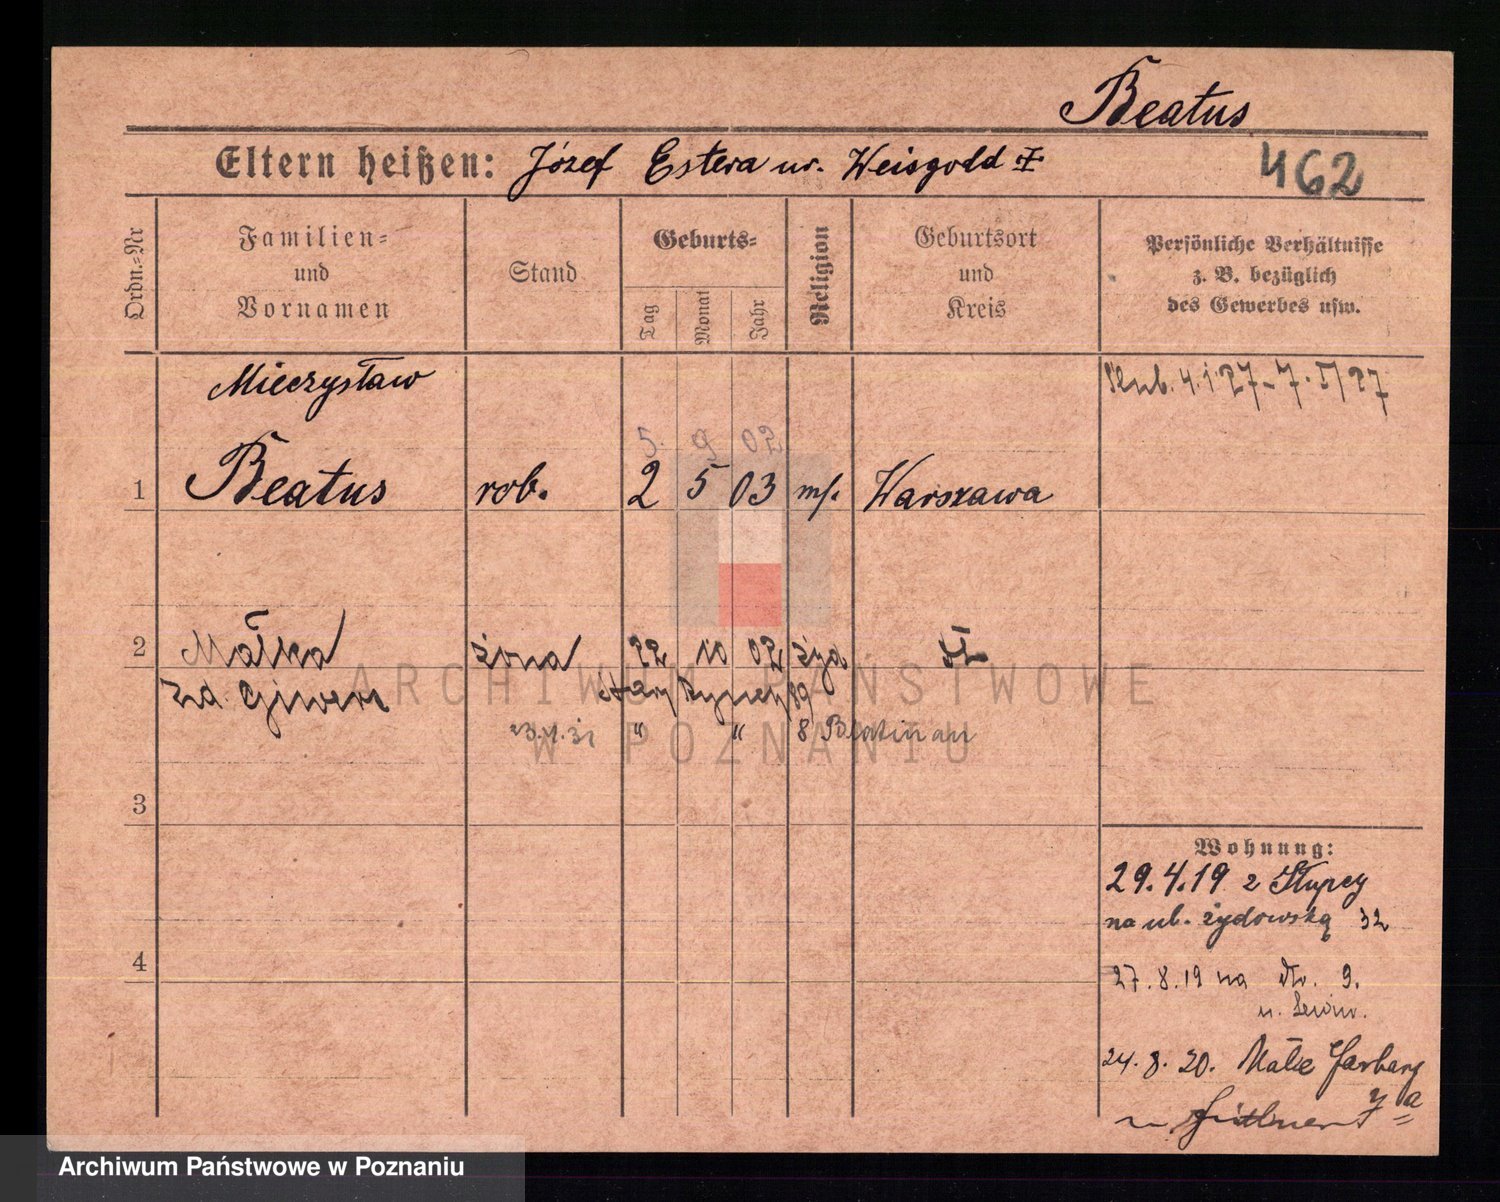 Beatus
Eltern heißen: Józef Estera ur. Weisgold
462
Ordn.-Nr
Familien-
und
Vornamen
Stand
Geburts-
Tag
Monat
Jahr
Religion
Geburtsort
und
Kreis
Persönliche Verhältnisse
z. B. bezüglich
des Gewerbes usw.
Mieczysław
4.1.27-7.5/27
5. 9 02
1 Beatus rob. 2 5 03 mż. Warszawa
2 Małka żona 22 10 02 żyd
Stary Rynek 89
23.4.31 " " 8
3
Wohnung:
29.4.19 z Słupcy
na ul. żydowską 32
4
27.8.19 na 9.
u. Lewin.
24.8.20. Małe Garbary
7a
ARCHIWUM PAŃSTWOWE
W POZNANIU
Archiwum Państwowe w Poznaniu